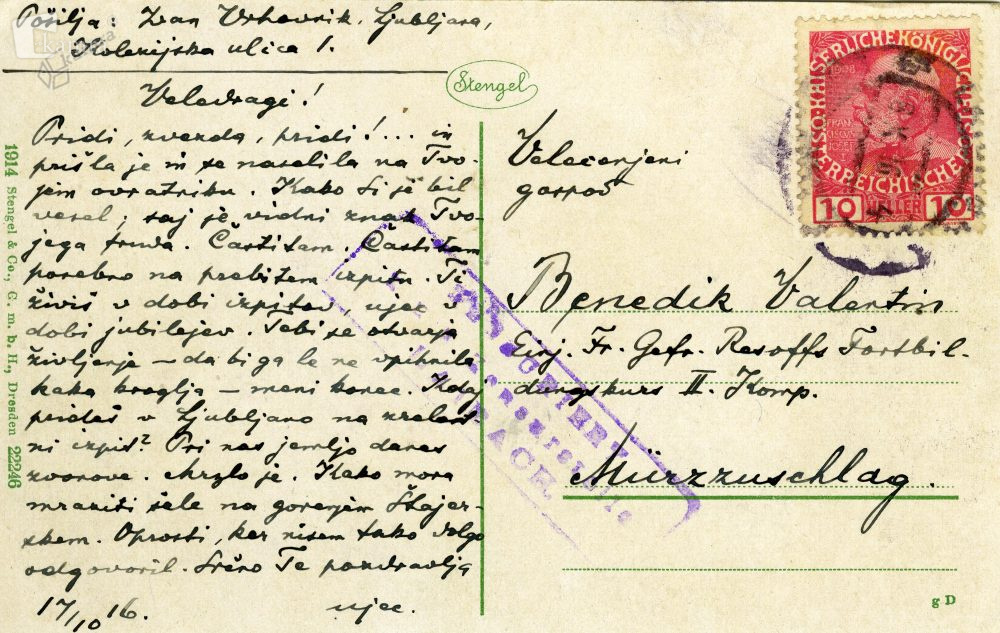 Pošilja: Ivan Vrhovnik, Ljubljana,
Kolezijska ulica 1.
Veledragi!
Pridi, zvezda, pridi!... in
prišla je in se naselila na Tvo-
jem ovratniku. Kako si je bil
vesel; saj je vidni znak Tvo-
jega truda. Častitam. Častitam
posebno na prebitem izpitu. Ti
živiš v dobi izpitov, ujec v
dobi jubilejev. Tebi se otvarja
življenje – da bi ga le ne vpihnila
kaka kroglja – meni konec. Kdaj
prideš v Ljubljano na zrelost-
ni izpit? Pri nas jemljo danes
zvonove. Mrzlo je. Kako mora
mraziti šele na gorenjem Štajer-
skem. Oprosti, ker nisem tako dolgo
odgovoril. Srčno Te pozdravlja
17/10 16. ujec.
1914 Stengel & Co., G. m. b. H., Dresden 22246
Stengel
KAISERLICHE KÖNIGLICHE ÖSTERREICHISCHE
1908
FRANCISCVS JOSEF I
10 HELLER 10
Velecenjeni
gospod
Benedik Valentin
Einj. Fr. Gefr. Resoffs Fortbil-
dungskurs II. Komp.
Mürzzuschlag.
Zensurstelle
g D